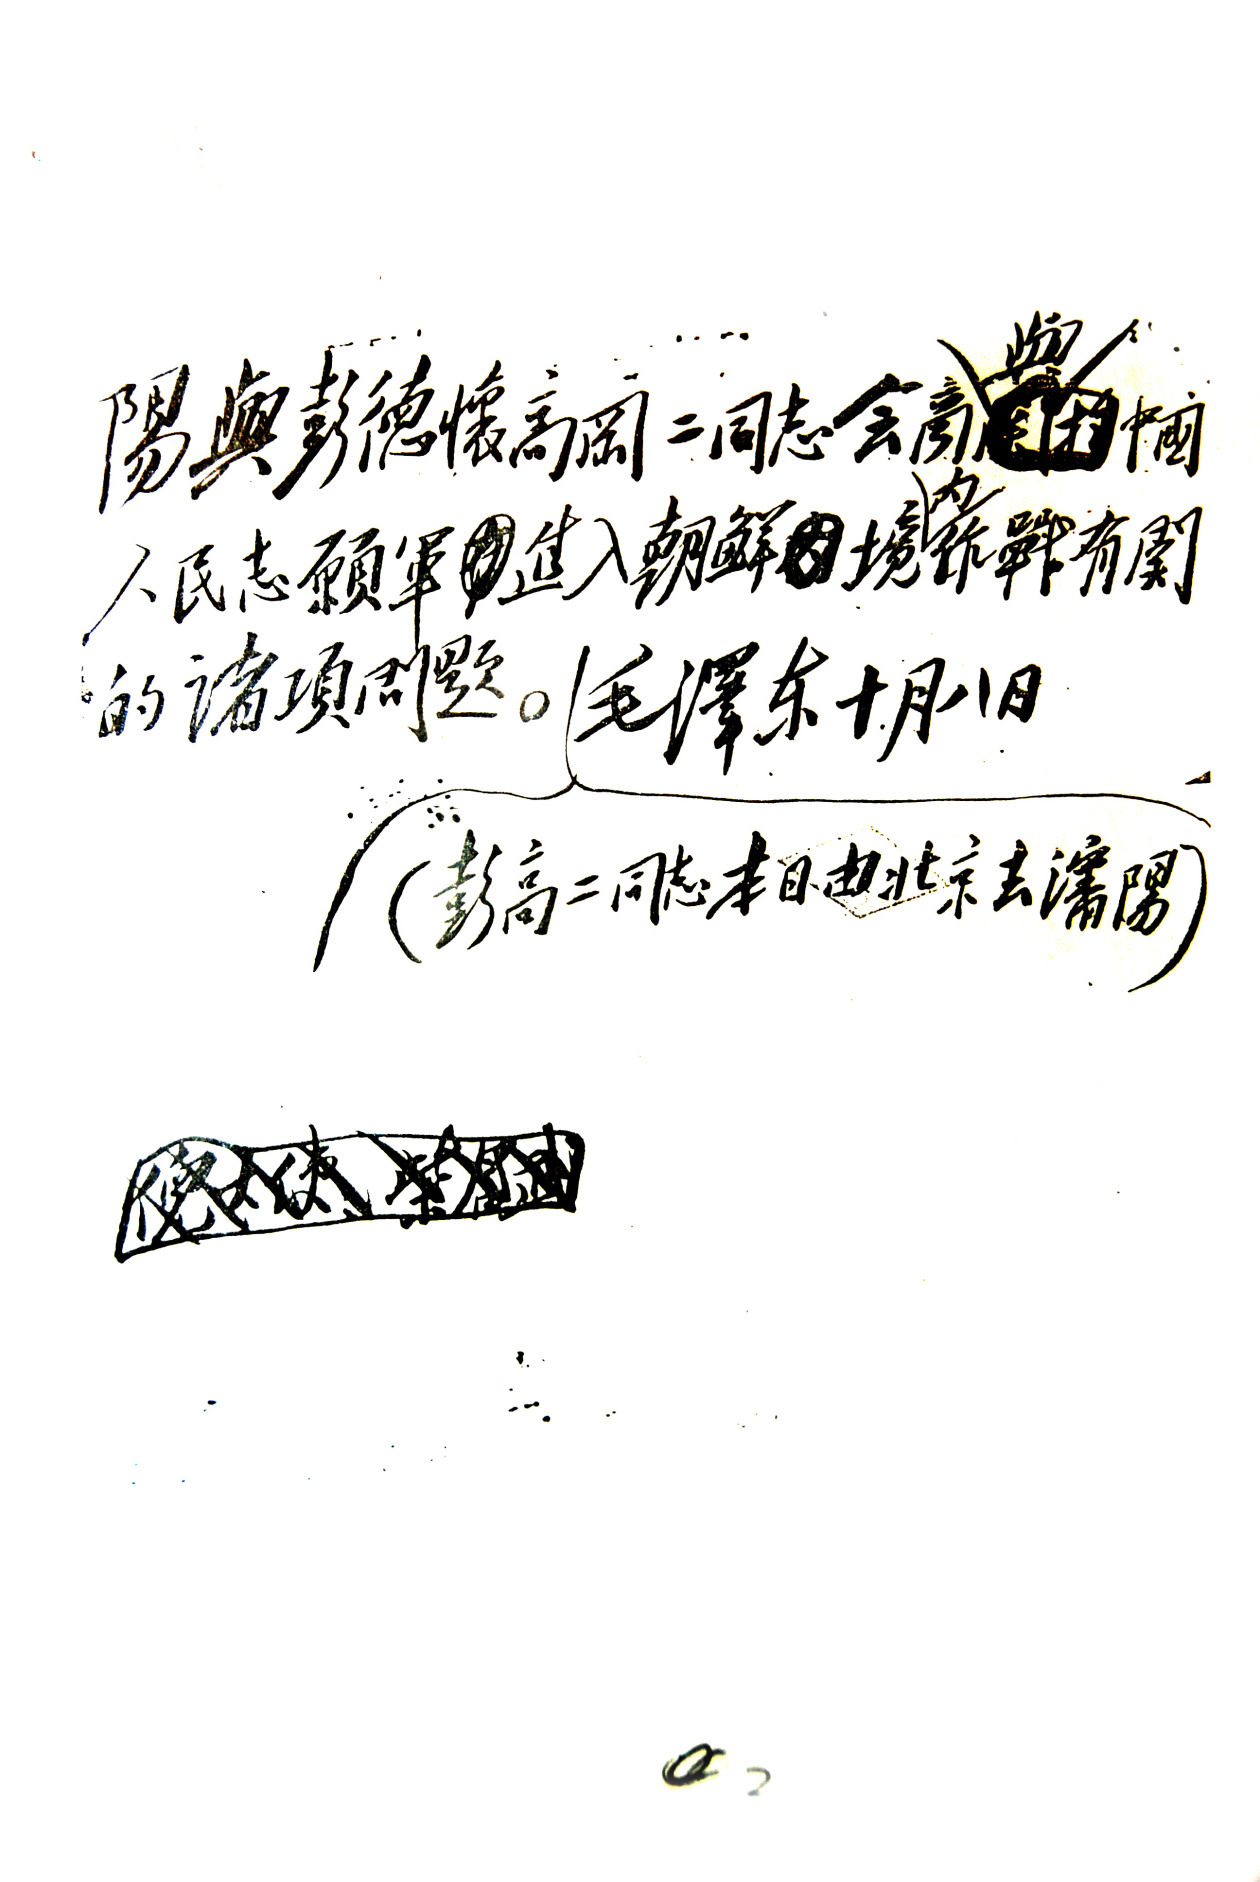 陽與彭德懷高岡二同志会商與中國
人民志願軍進入朝鮮境内作戰有関
的諸項問題。毛澤东十月八日
(彭高二同志本日由北京去瀋陽)